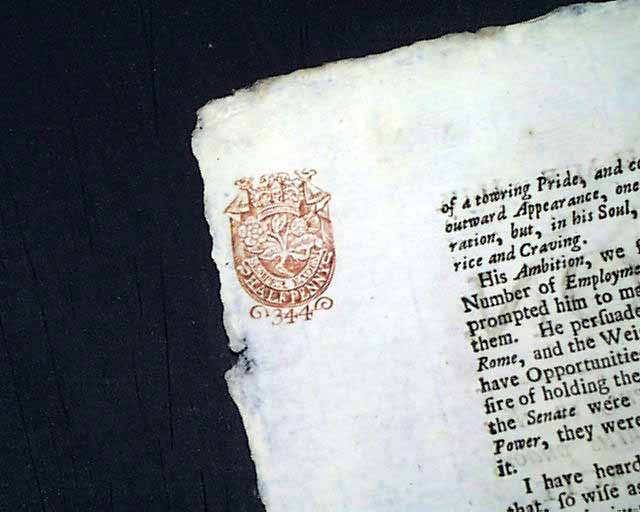 SEMPER EADEM
HALFPENNY
344
of a towring Pride, and co
outward Appearance, one
ration, but, in his Soul,
rice and Craving.
His Ambition, we f
Number of Employme
prompted him to ma
them. He perſuade
Rome, and the Wei
have Opportunitie
ſire of holding the
the Senate were
Power, they were
it.
I have heard
that, ſo wiſe as